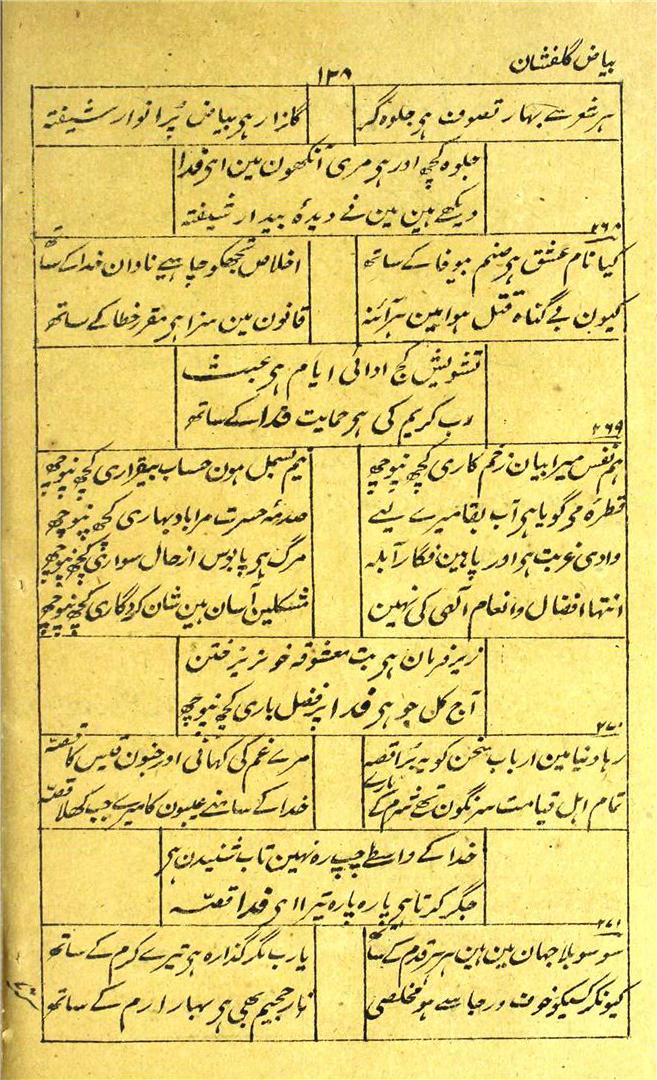 بیاض گلفشان
۱۳۸
ہر شعر سے بہار تصوف ہی جلوہ گر گلزار ہی بیاض پُر انوار شیفتہ
جلوہ کچھ اور ہی مری آنکھون مین ای فدا
دیکھے ہین مین نے دیدۂ بیدار شیفتہ
۲۶۸
کیا نام عشق ہی صنم بیوفا کے ساتھ اخلاص تجھکو چاہیے نادان خدا کے ساتھ
کیون بے گناہ قتل ہوا مین ہر آئنہ قانون مین سزا ہی مقرر خطا کے ساتھ
تشویش کج ادائی ایام ہی عبث
رب کریم کی ہی حمایت فدا کے ساتھ
۲۶۹
ہم نفس میرا بیان زخم کاری کچھ نپوچھ نیم بسمل ہون حساب بیقراری کچھ نپوچھ
قطرۂ مے گویا ہی آب بقا میرے لیے صدمۂ حسرت مرا باد بہاری کچھ نپوچھ
وادی غربت ہی اور پا ہین فگار آبلہ مرگ ہی پابوس از حال سواری کچھ نپوچھ
انتہا افضال و انعام الٰہی کی نہین مشکلین آسان ہین شان کردگاری کچھ نپوچھ
زیر فرمان ہی بت معشوقہ خونریز ختن
آج کل جو ہی فدا پر فضل باری کچھ نپوچھ
۲۷۰
رہا دنیا مین ارباب سخن کو یہ بڑا قصہ مرے غم کی کہانی اور جنون قیس کا قصہ
تمام اہل قیامت سرنگون تھے شرم کے مارے خدا کے سامنے عیبون کا میرے جب کھلا قصّہ
خدا کے واسطے چپ رہ نہین تاب شنیدن ہی
جگر کرتا ہی پارہ پارہ تیرا ای فدا قصّہ
۲۷۱
سو سو بلا جہان مین ہین ہر ہر قدم کے ساتھ یا رب مگر گذارہ ہی تیرے کرم کے ساتھ
کیونکر کسیکو خوف و رجا سے ہو مخلصی نار جحیم بھی ہی بہار ارم کے ساتھ